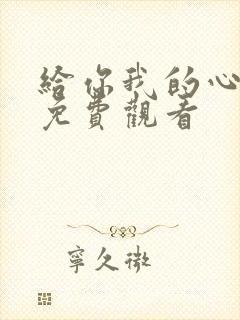 給你我的心
免費觀看
寧久微